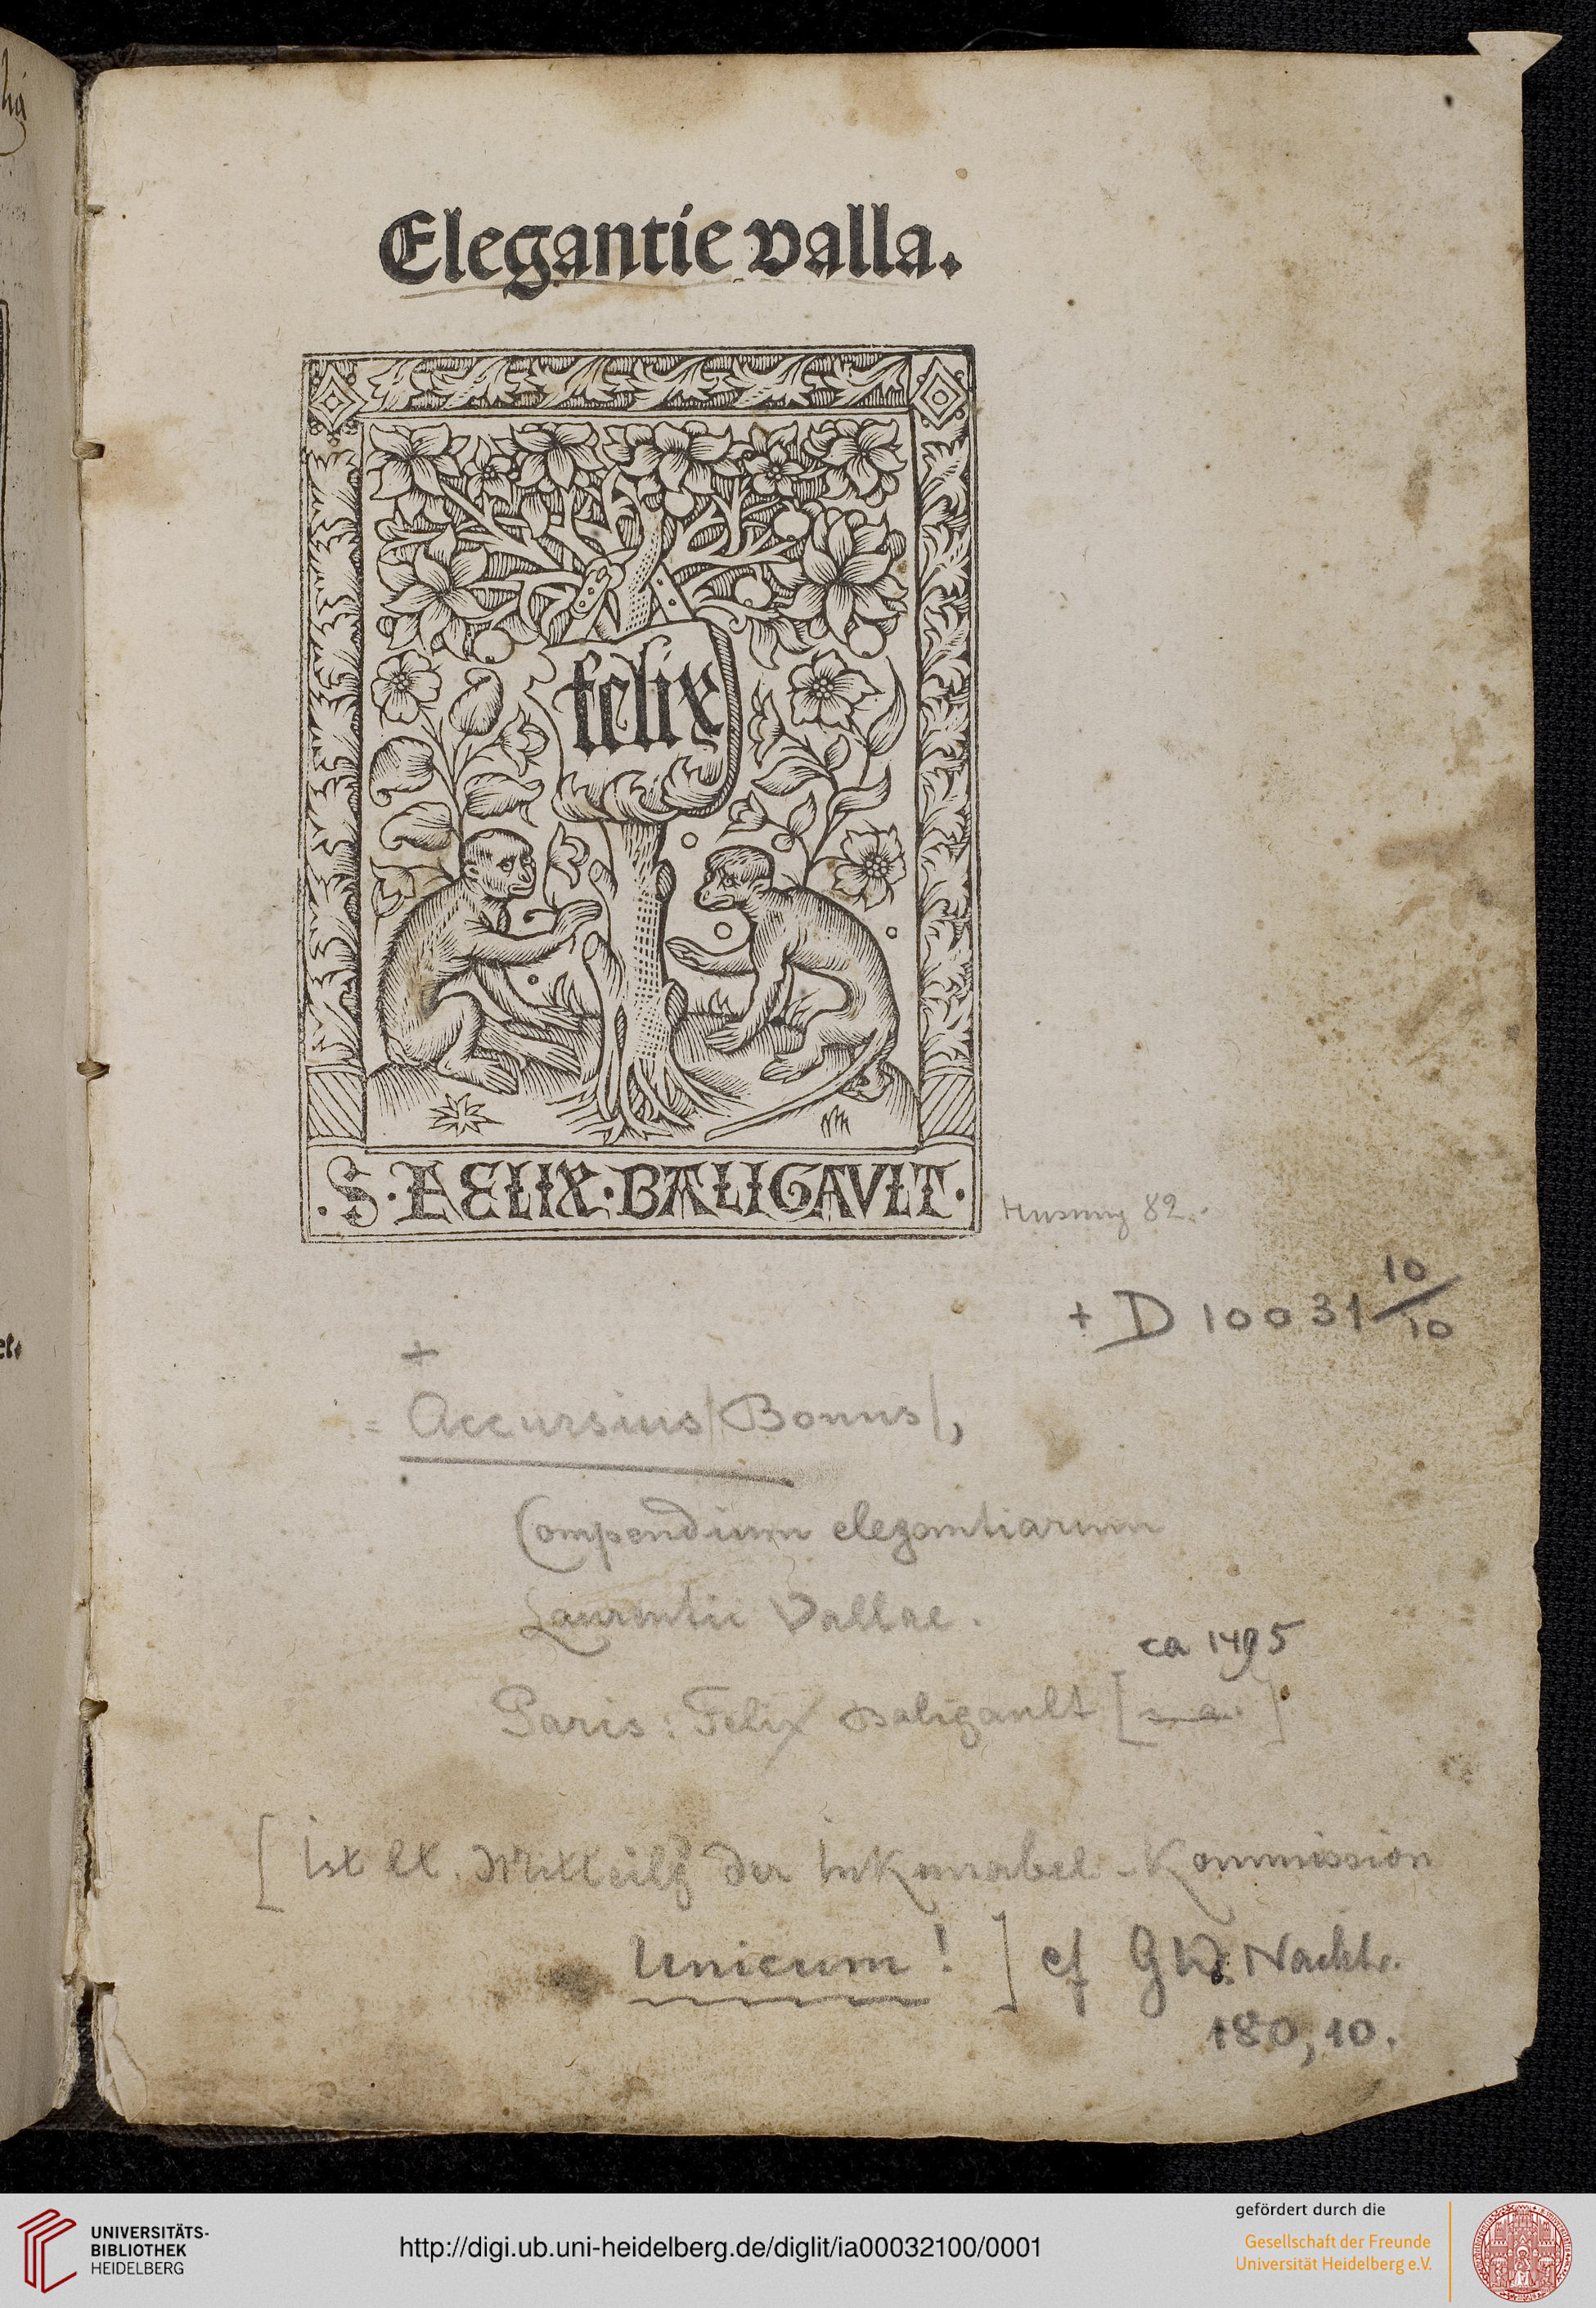 Elegantie valla.
felix
.S.FELIX.BALIGAVLT.
Husung 82.
+ D 10031 10/10
+
= Accursius (Bonus),
Compendium elegantiarum
Laurentii Vallae.
ca 1495
Paris: Felix Baligault [s. a.]
[Ist lt. Mitteilg der Inkunabel-Kommission
Unicum! ] cf GW. Nachtr.
180,10.
UNIVERSITÄTS-
BIBLIOTHEK
HEIDELBERG
http://digi.ub.uni-heidelberg.de/diglit/ia00032100/0001
gefördert durch die
Gesellschaft der Freunde
Universität Heidelberg e.V.